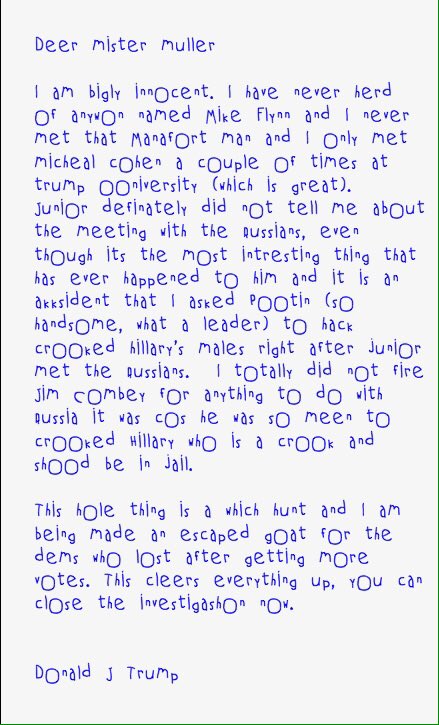 Deer mister muller
I am bigly innocent. I have never herd
of anywon named Mike Flynn and I never
met that Manafort man and I only met
micheal cohen a couple of times at
trump ooniversity (which is great).
Junior definately did not tell me about
the meeting with the Russians, even
though its the most intresting thing that
has ever happened to him and it is an
akksident that I asked Pootin (so
handsome, what a leader) to hack
crooked hillary's males right after Junior
met the Russians. I totally did not fire
Jim Combey for anything to do with
Russia it was cos he was so meen to
crooked Hillary who is a crook and
shood be in jail.
This hole thing is a which hunt and I am
being made an escaped goat for the
dems who lost after getting more
votes. This cleers everything up, you can
close the investigashon now.
Donald J Trump